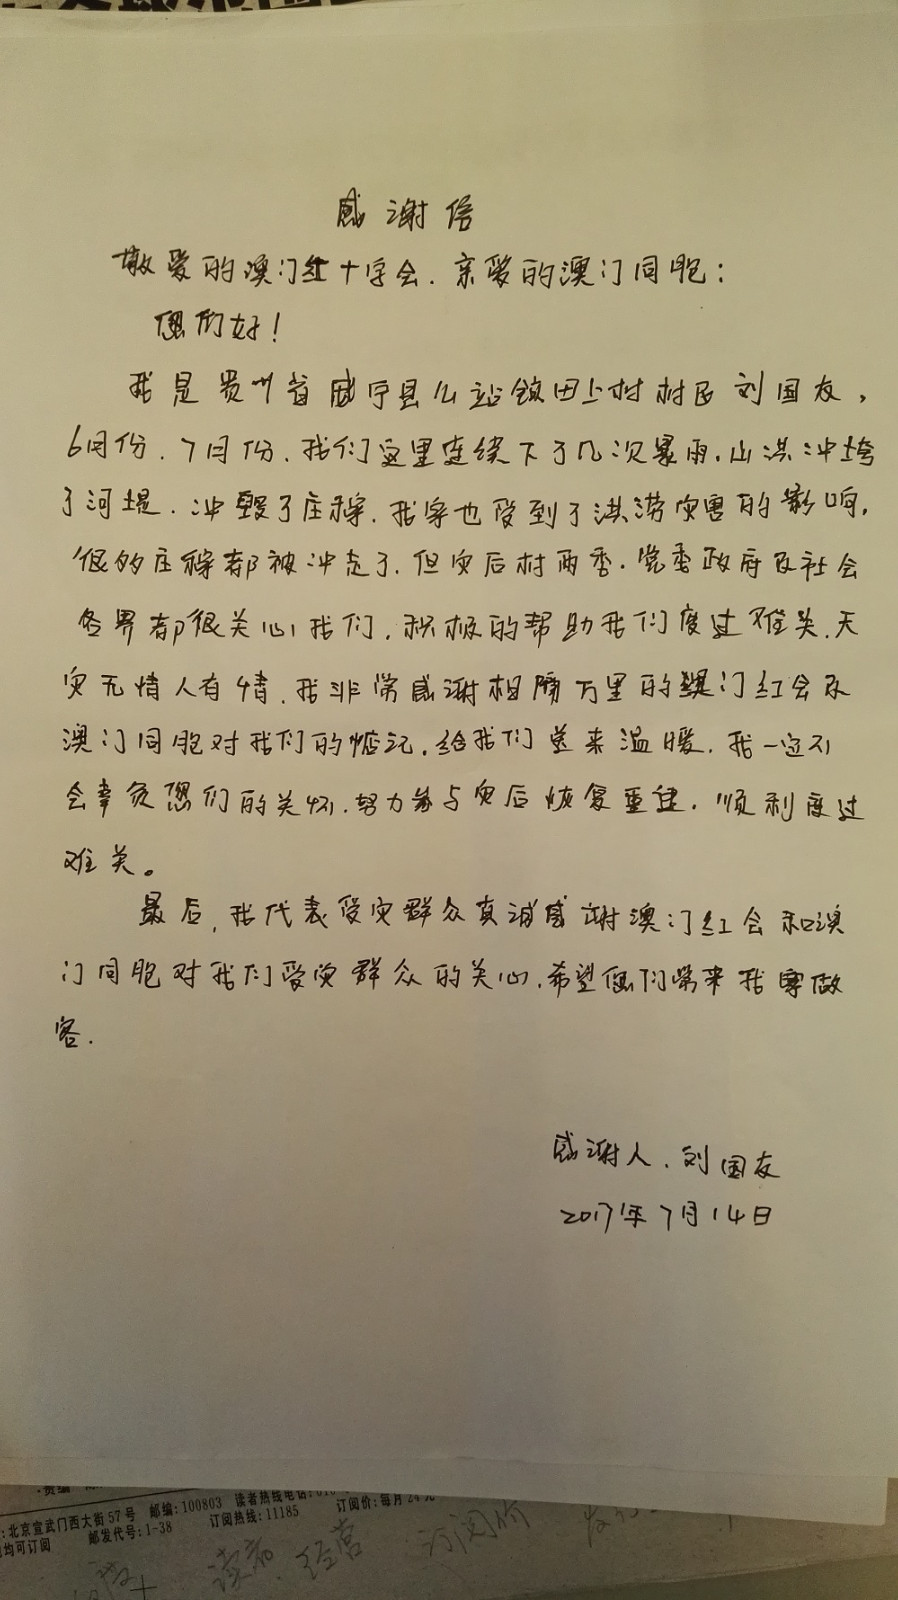 感谢信
敬爱的澳门红十字会.亲爱的澳门同胞:
您们好!
我是贵州省威宁县么站镇田上村村民刘国友,
6月份.7月份.我们这里连续下了几次暴雨.山洪冲垮
了河堤.冲毁了庄稼.我家也受到了洪涝灾害的影响,
很多庄稼都被冲走了.但灾后村两委.党委政府及社会
各界都很关心我们,积极的帮助我们度过难关.天
灾无情人有情,我非常感谢相隔万里的澳门红会及
澳门同胞对我们的惦记.给我们送来温暖.我一定不
会辜负您们的关怀.努力参与灾后恢复重建.顺利度过
难关。
最后,我代表受灾群众真诚感谢澳门红会和澳
门同胞对我们受灾群众的关心.希望您们常来我家做
客.
感谢人.刘国友
2017年7月14日
责编
:北京宣武门西大街57号 邮编:100803 读者热线电话:010
均可订阅 邮发代号:1-38 订阅热线:11185 订阅价:每月24元
读者.经营 订阅价